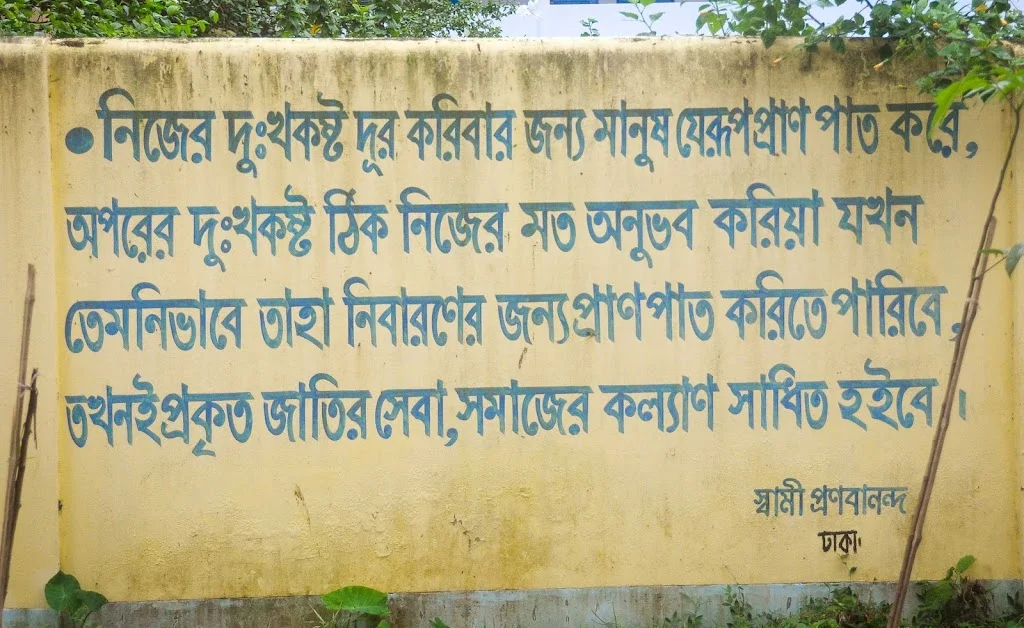 ● নিজের দুঃখকষ্ট দূর করিবার জন্য মানুষ যেরূপ প্রাণ পাত করে,
অপরের দুঃখকষ্ট ঠিক নিজের মত অনুভব করিয়া যখন
তেমনিভাবে তাহা নিবারণের জন্য প্রাণ পাত করিতে পারিবে,
তখনই প্রকৃত জাতির সেবা, সমাজের কল্যাণ সাধিত হইবে।
স্বামী প্রণবানন্দ
ঢাকা।